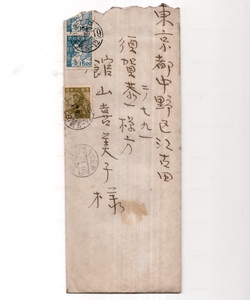 東京都中野区江古田
二ノ七九一
須賀恭一様方
館山喜美子様